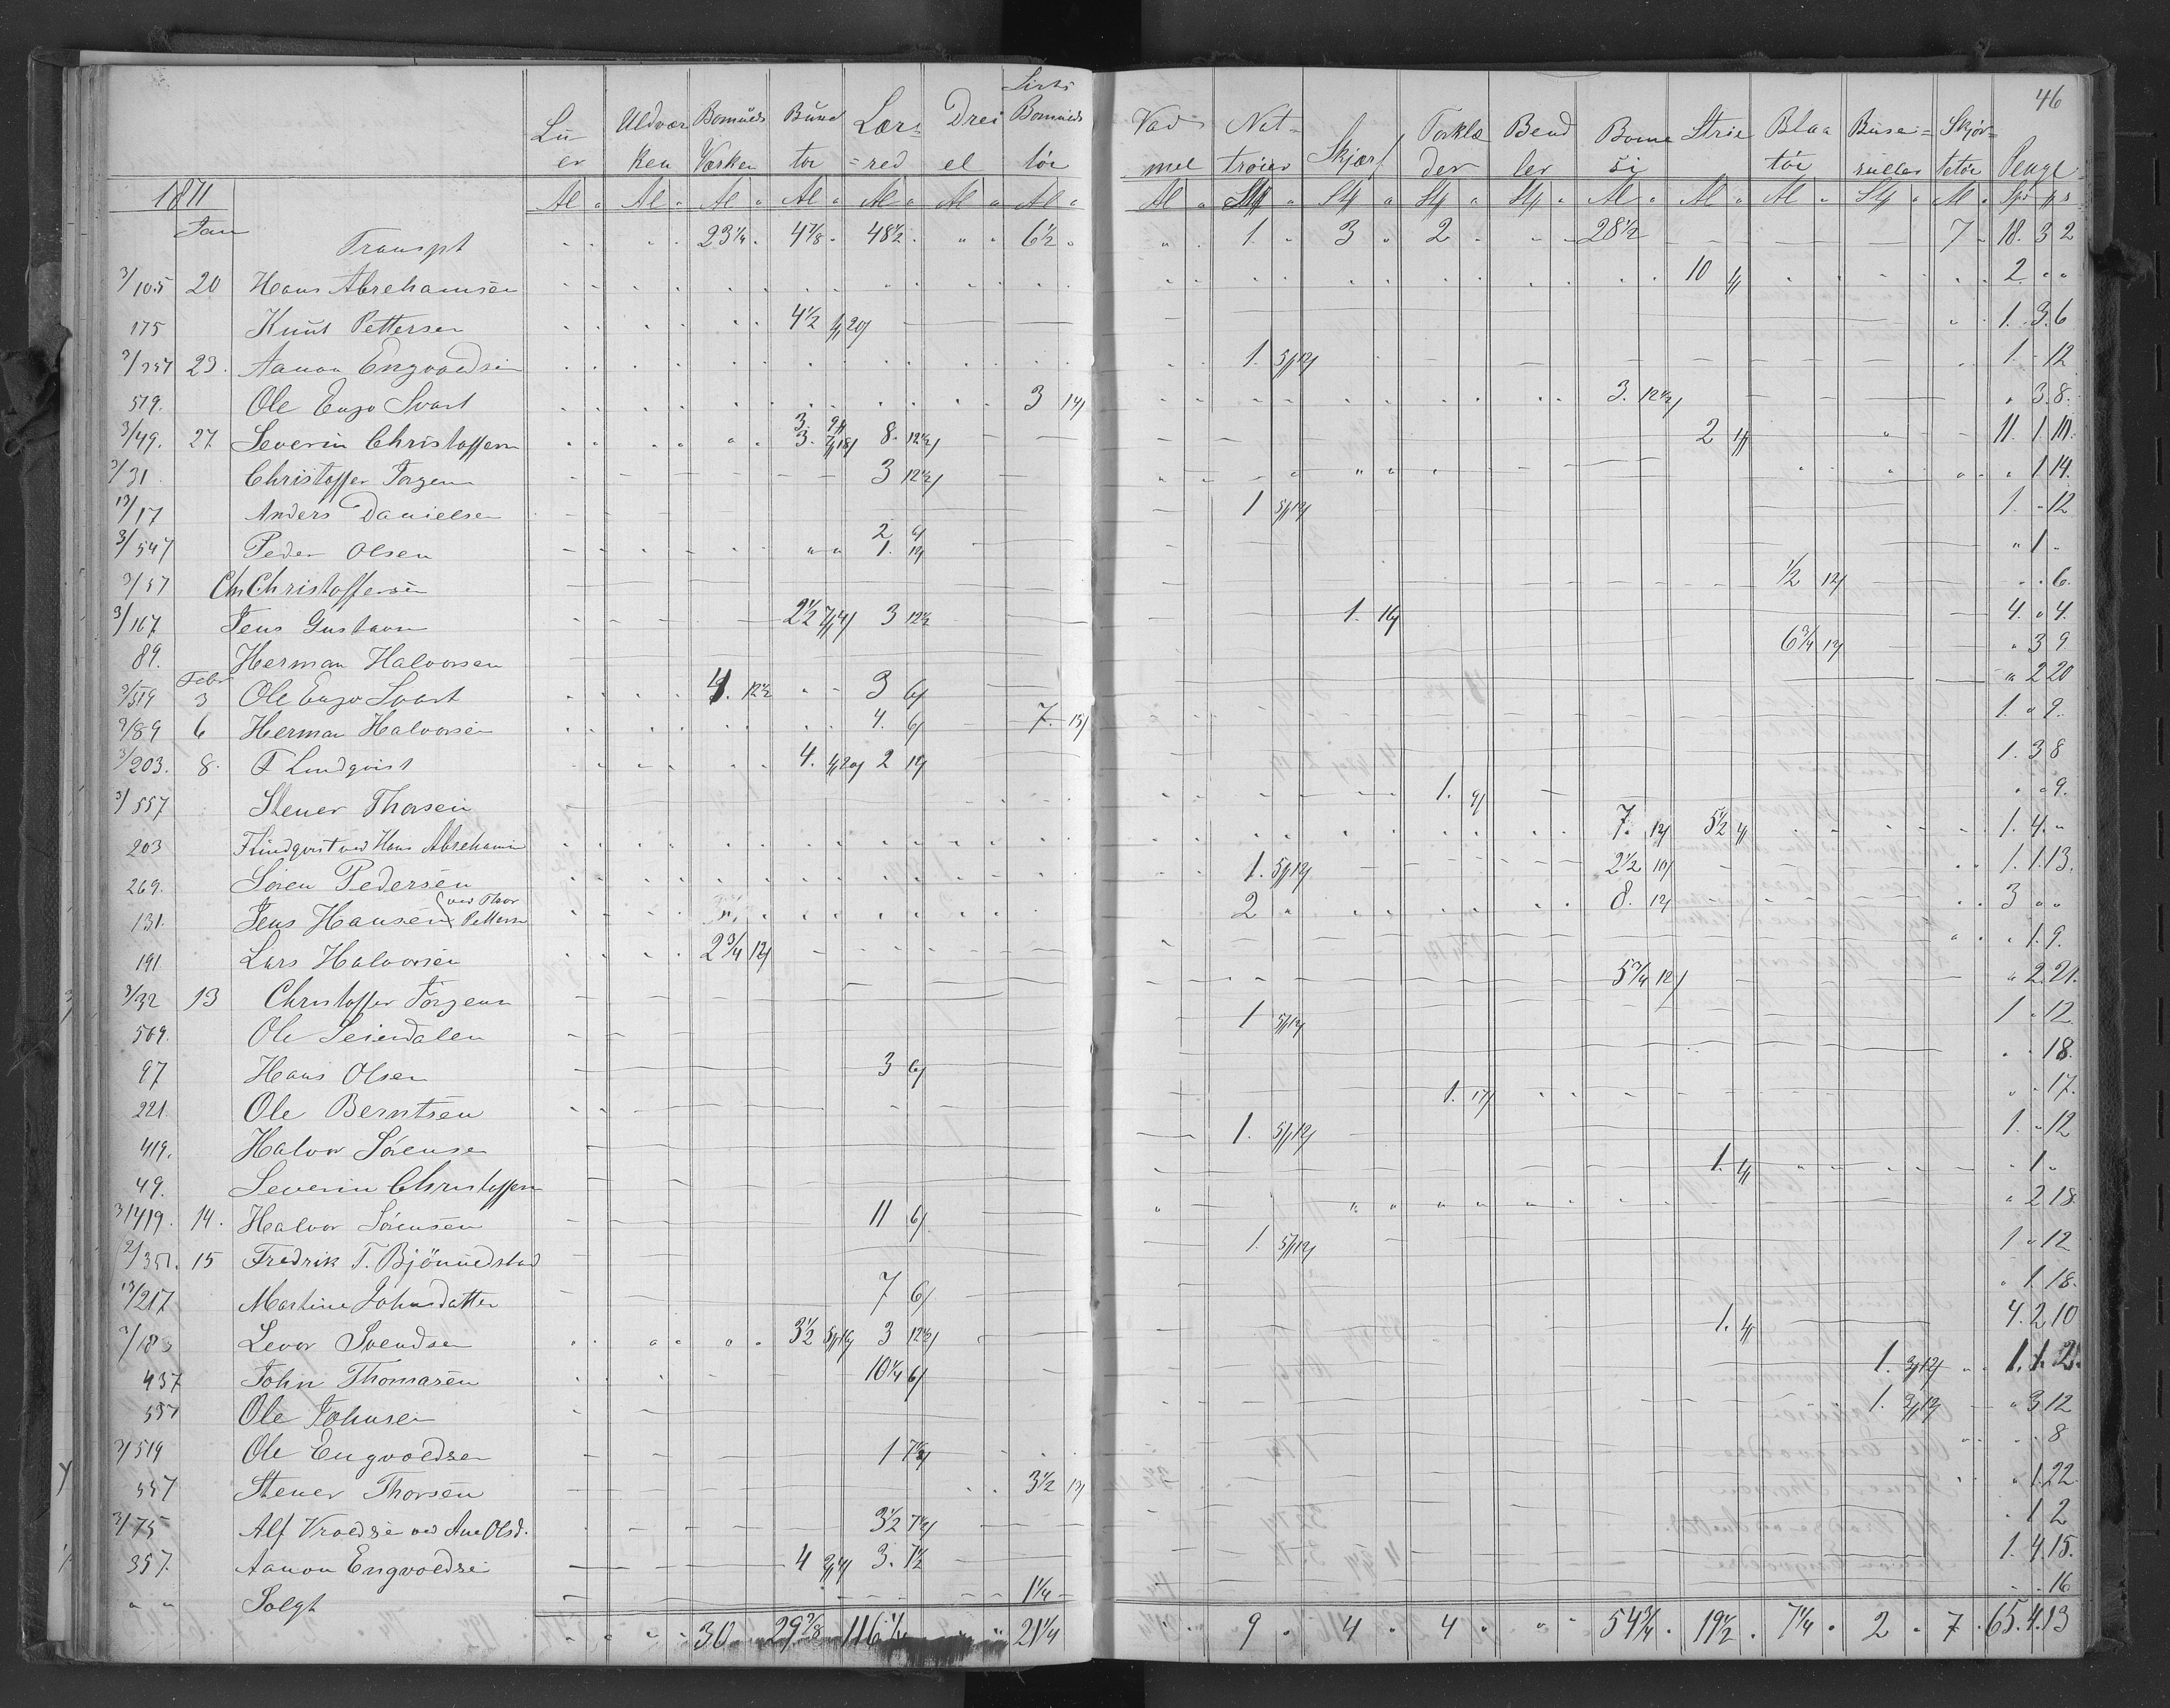 46
Lu er | Uldvær ken | Bomulds Værken | Bund toi | Lær= =red | Drei el | Sirts Bomulds töi | Vad mel | Nat= tröier | Skjærf | Forklæ der | Bend ler | Bome si | Strie | Blaa töi | Buse= ruller | Skjör= tetöi | Penge
1871 | Al | Al | Al | Al | Al | Al | Al | Al | St | St | St | St | Al | Al | Al | St | Al | Spd
Jan Transpt 23 1/4 4 7/8 48 1/2 6 1/2 1. 3 2 28 1/2 7 18. 3 2
3/105 20 Hans Abrehamsen 10 2. " "
175 Knut Pettersen 4 1/2 1. 3. 6
3/357 23. Aanon Engvoldsen 1. 1 - 12
519. Ole Engv Svart 3 14/ 3. 12 1/2 " 3. 8.
3/49. 27 Severin Christoffersen 3. 3. 8. 12 1/2 2 11. 1. 10.
3/31 Christoffer Jörgensen 3 12 1/2 " 1 14.
13/17 Anders Danielsen 1 1. - 12
3/547 Peder Olsen 2 1. " 1 -
3/57 Chr Christoffersen 1/2 12/ - - 6.
3/167 Jens Gustavsen 2 1/2 3 12 1/2 1. 16/ 4. " 4.
89. Herman Halvorsen 6 3/4 " 3 9
Febr
3/519 3 Ole Engv Svart 4. 12 1/2 3 6/ " 2 20
3/89 6 Herman Halvorsen 4. 6/ 7. 13/ 1. " 9.
3/203. 8. F Lindqvist 4. 2 1. 3 8
3/557 Stener Thorsen 1. 9/ " " 9.
203 F Lindqvist ved Hans Abrehamsen 7. 12/ 5 1/2 1. 4. "
269. Sören Pedersen 1. 2 1/2 10/ 1. 1. 13.
131. Jens Hansen ved Thor Pettersen 2 8. 12/ 3 " "
191 Lars Halvorsen 2 3/4 12/ " 1. 9.
3/32 13 Christoffer Jörgensen 5 3/4 12/ " 2. 21.
569. Ole Seierdalen 1 1 - 12.
97 Hans Olsen 3 6/ " - 18.
221. Ole Berntsen 1. 17/ " - 17.
419. Halvor Sörensen 1. 1. - 12
49. Severin Christoffersen 1. " 1 "
3/419. 14. Halvor Sörensen 11 6/ " 2 18
2/351. 15 Fredrik T. Bjönnedstad 1. 1 " 12
13/217 Martine Johnsdatter 7 6/ " 1. 18.
Levor Svendsen 3 1/2 3 12 1/2 1. 4. 2 10
437 John Thomasen 10 1/4 6/ 1. 1. 1. 2.
557 Ole Johnsen 1. " 3 12
3/519 Ole Engvoldsen 1 7 1/2 - - 8
557 Stener Thorsen 3 1/2 13/ " 1. 22
3/75 Alf Vroldsen ved Ane Olsd. 3 1/2 7 1/2 - 1 2
357. Aanon Engvoldsen 4 3. 7 1/2 1. 4. 15.
" " Solgt 1 1/4 - - 16
30 29 7/8 116 1/4 21 1/4 9 4 4 54 3/4 19 1/2 7 1/4 2 7 65. 4. 13